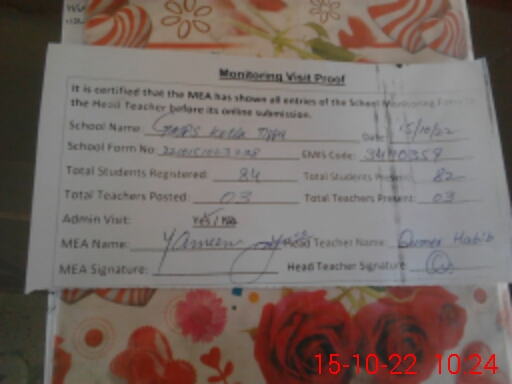 Monitoring Visit Proof
It is certified that the MEA has shown all entries of the School Monitoring Form to
the Head Teacher before its online submission.
School Name: Date: 15/10/22
School Form No: EMIS Code:
Total Students Registered: 84 Total Students Present: 82
Total Teachers Posted: 03 Total Teachers Present: 03
Admin Visit: YES / No
MEA Name: Yameen Head Teacher Name: Qumer Habib
MEA Signature: Head Teacher Signature:
15-10-22 10:24